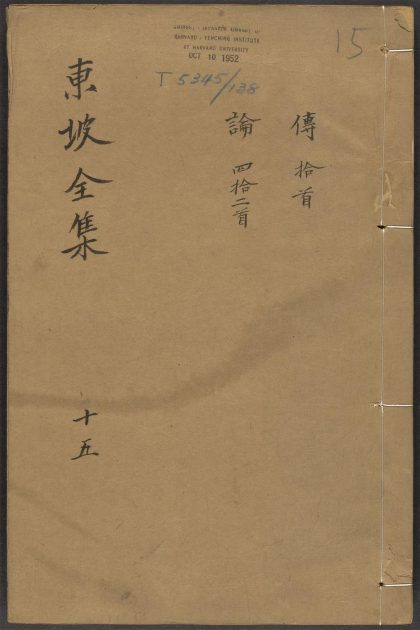 CHINESE - JAPANESE LIBRARY OF
HARVARD - YENCHING INSTITUTE
AT HARVARD UNIVERSITY
OCT 10 1952
15
T 5345/138
傳 拾首
論 四拾二首
東坡全集
十五